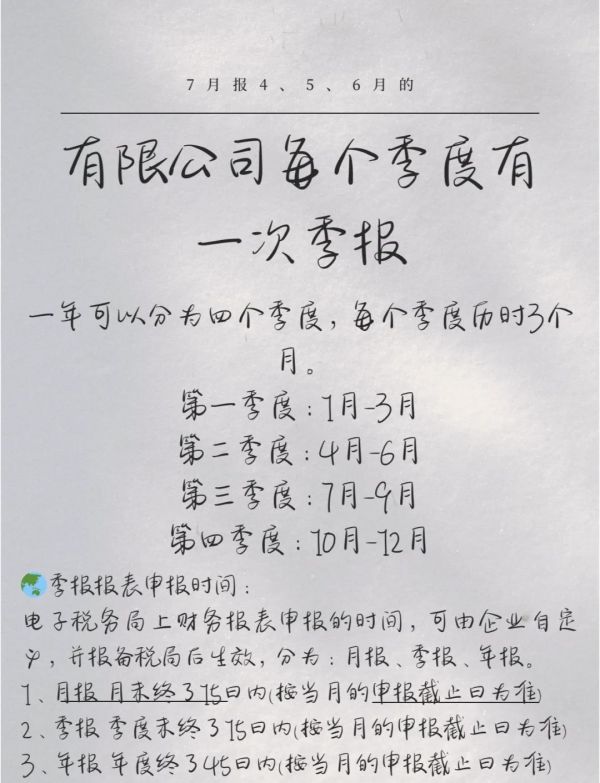 7月报4、5、6月的
有限公司每个季度有
一次季报
一年可以分为四个季度，每个季度历时3个
月。
第一季度：1月-3月
第二季度：4月-6月
第三季度：7月-9月
第四季度：10月-12月
季报报表申报时间：
电子税务局上财务报表申报的时间，可由企业自定
义，并报备税局后生效，分为：月报、季报、年报。
1、月报 月末终了15日内(按当月的申报截止日为准)
2、季报 季度末终了15日内(按当月的申报截止日为准)
3、年报 年度终了45日内(按当月的申报截止日为准)